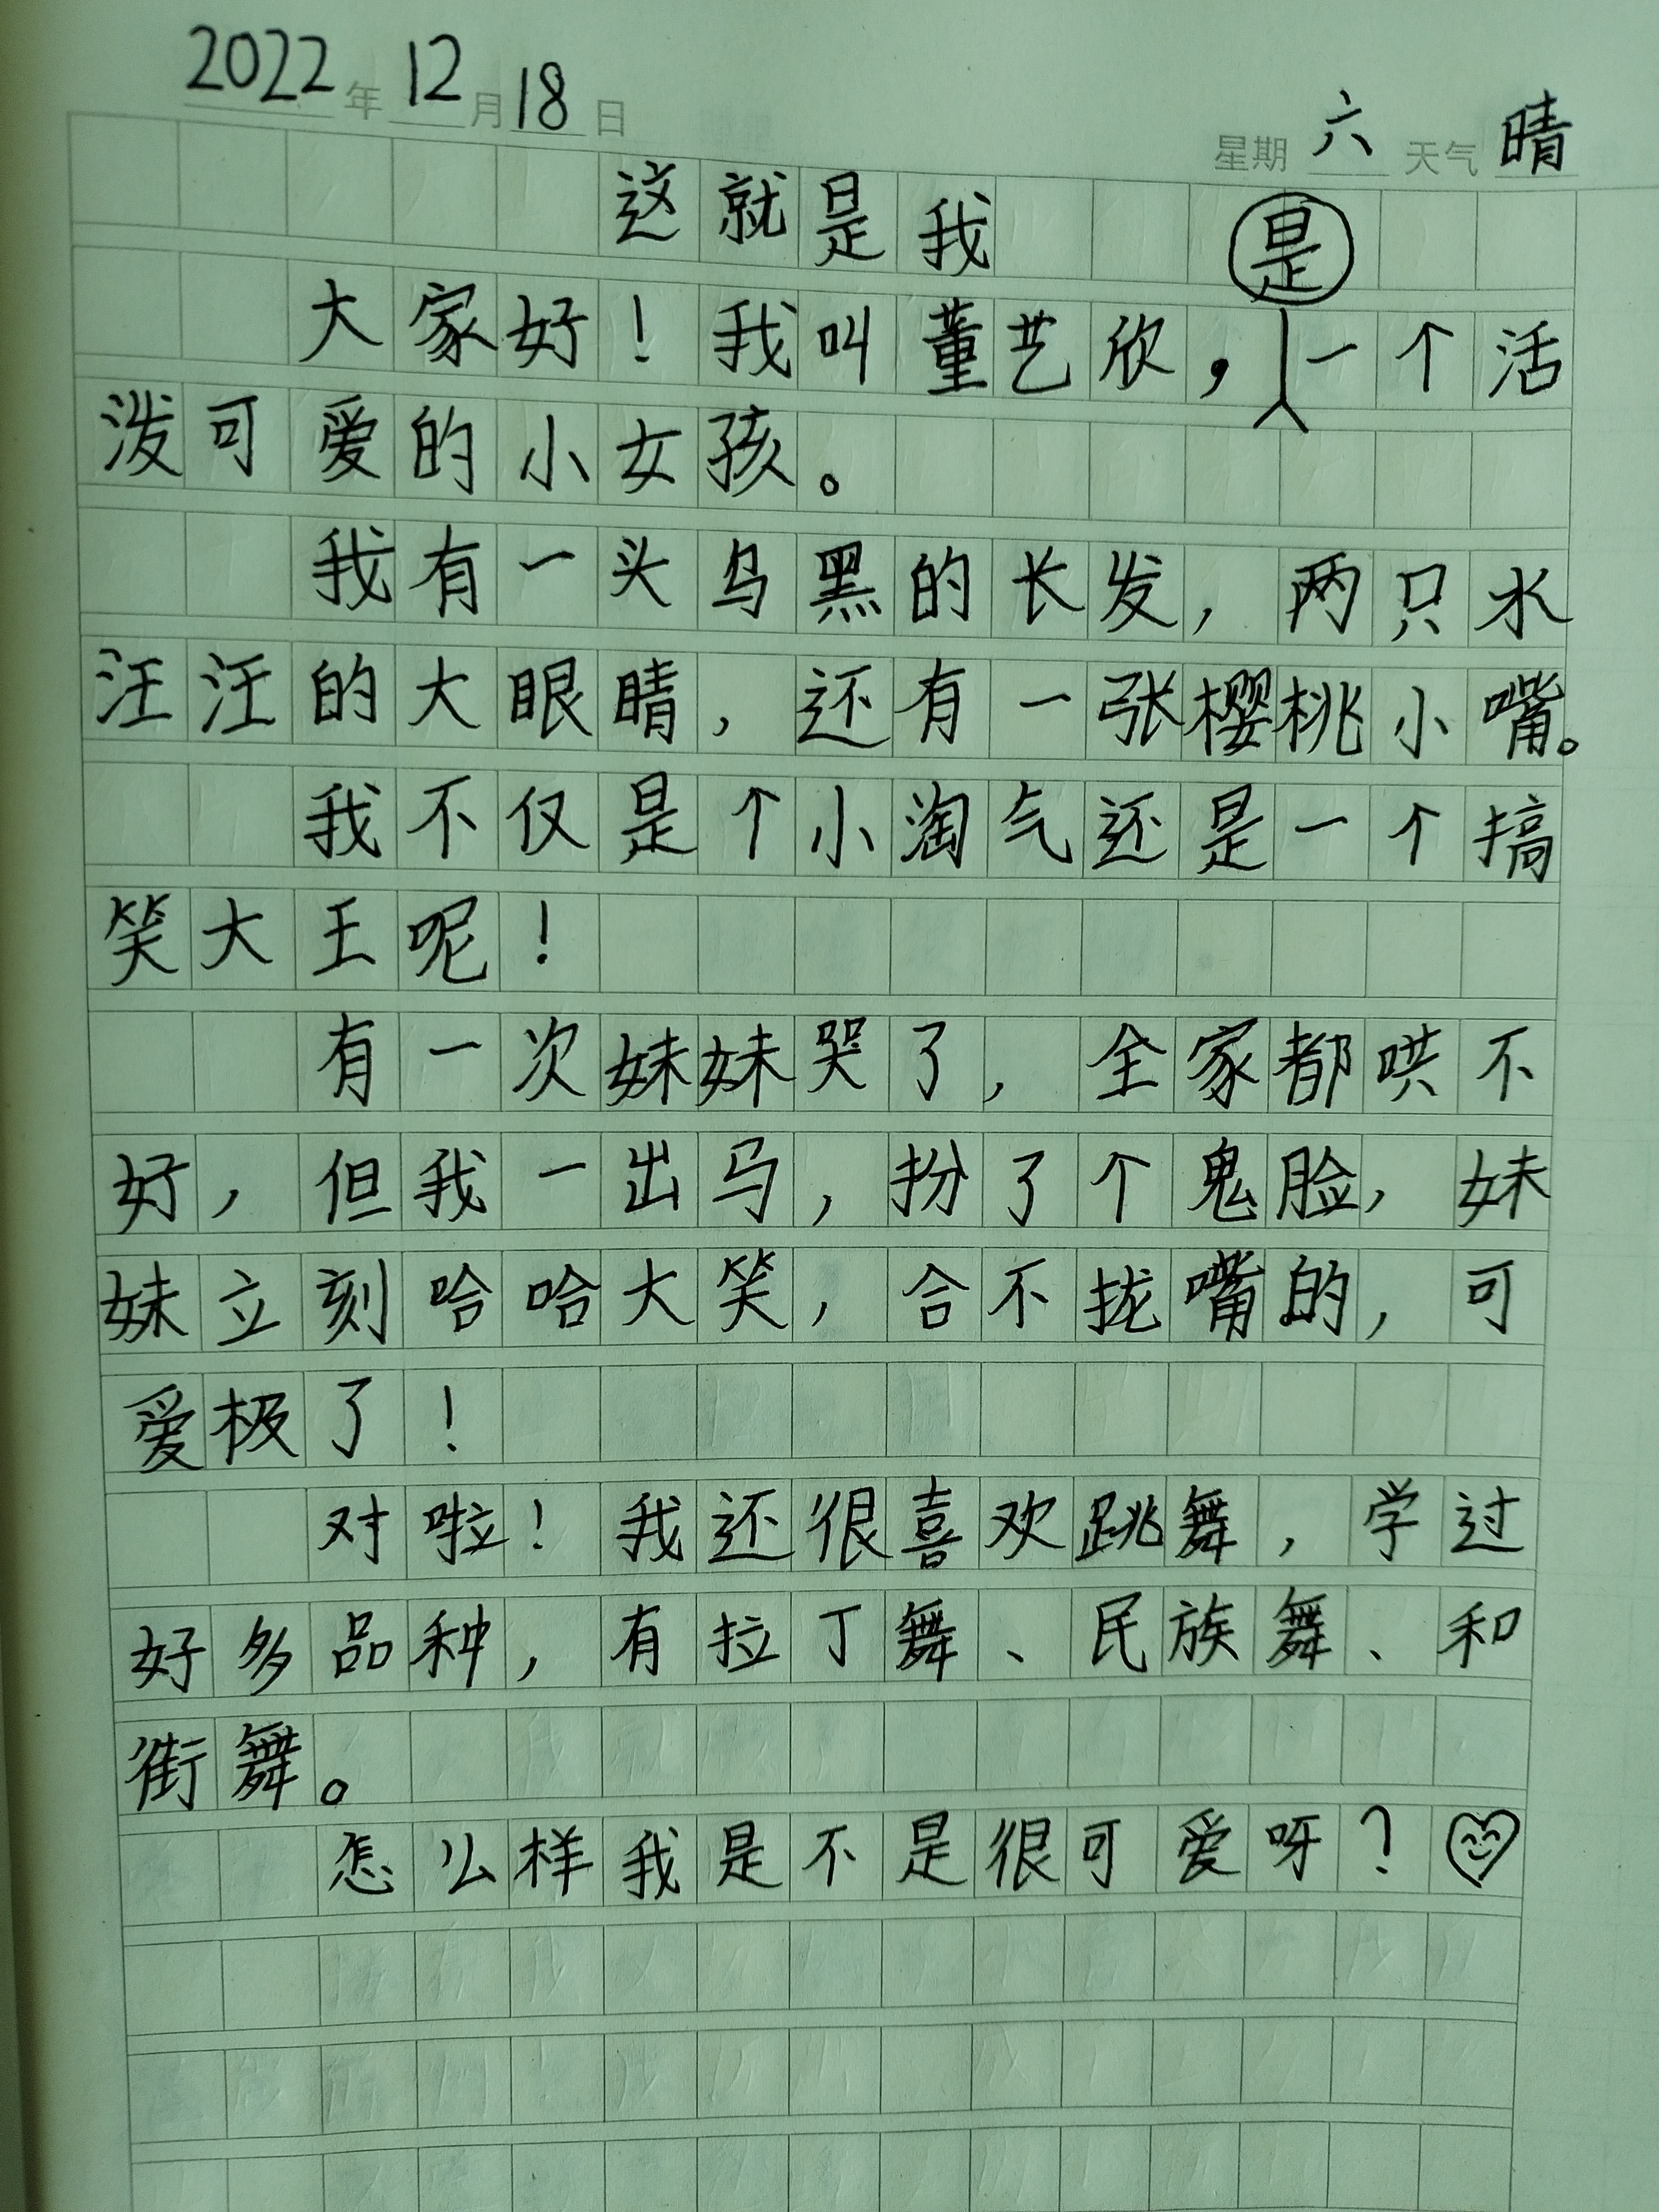 2022年12月18日
星期六 天气晴
这就是我
大家好！我叫董艺欣，是一个活
泼可爱的小女孩。
我有一头乌黑的长发，两只水
汪汪的大眼睛，还有一张樱桃小嘴。
我不仅是个小淘气还是一个搞
笑大王呢！
有一次妹妹哭了，全家都哄不
好，但我一出马，扮了个鬼脸，妹
妹立刻哈哈大笑，合不拢嘴的，可
爱极了！
对啦！我还很喜欢跳舞，学过
好多品种，有拉丁舞、民族舞、和
街舞。
怎么样我是不是很可爱呀？